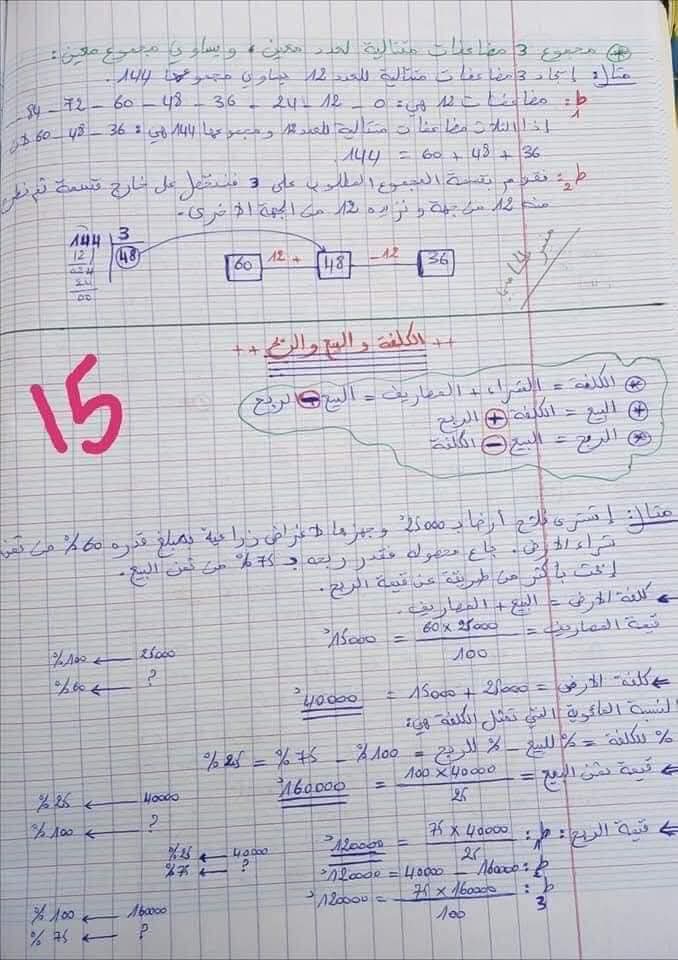 * مجموع 3 مضاعفات متتالية لعدد معين، ويساوي مجموع معين:
مثال: إيجاد 3 مضاعفات متتالية للعدد 12 يساوي مجموعها 144.
ط1: مضاعفات 12 هي: 0 - 12 - 24 - 36 - 48 - 60 - 72 - 84 -
إذا الثلاث مضاعفات متتالية للعدد 12 ومجموعها 144 هي: 36 - 48 - 60
36 + 48 + 60 = 144
ط2: نقوم بقسمة المجموع المطلوب على 3 فنتحصل على خارج قسمة ثم
منه 12 من جهة ونزيده 12 من الجهة الأخرى.
144 3
12 48
024
24
00
60 12+ 48 -12 36
++ الكلفة والبيع والربح ++
15
* الكلفة = الشراء + المصاريف = البيع - الربح
* البيع = الكلفة + الربح
* الربح = البيع - الكلفة
مثال: إشترى فلاح أرضا بـ 25000د وجهزها لأغراض زراعية بمبلغ قدره 60% من ثمن
شراء الأرض. باع محصوله فقدر ربحه بـ 75% من ثمن البيع.
إبحث بأكثر من طريقة عن قيمة الربح.
← كلفة الأرض = البيع + المصاريف.
قيمة المصاريف = 60 × 25000 / 100 = 15000د
25000 ← 100%
? ← 60%
← كلفة الأرض = 25000 + 15000 = 40000د
النسبة المائوية التي تمثل الكلفة هي:
% للكلفة = % للبيع - % للربح = 100% - 75% = 25%
← قيمة ثمن البيع = 100 × 40000 / 25 = 160000د
40000 ← 25%
? ← 100%
← قيمة الربح: ط1: 75 × 40000 / 25 = 120000د
40000 ← 25%
? ← 75%
ط2: 160000 - 40000 = 120000د
ط3: 75 × 160000 / 100 = 120000د
160000 ← 100%
? ← 75%